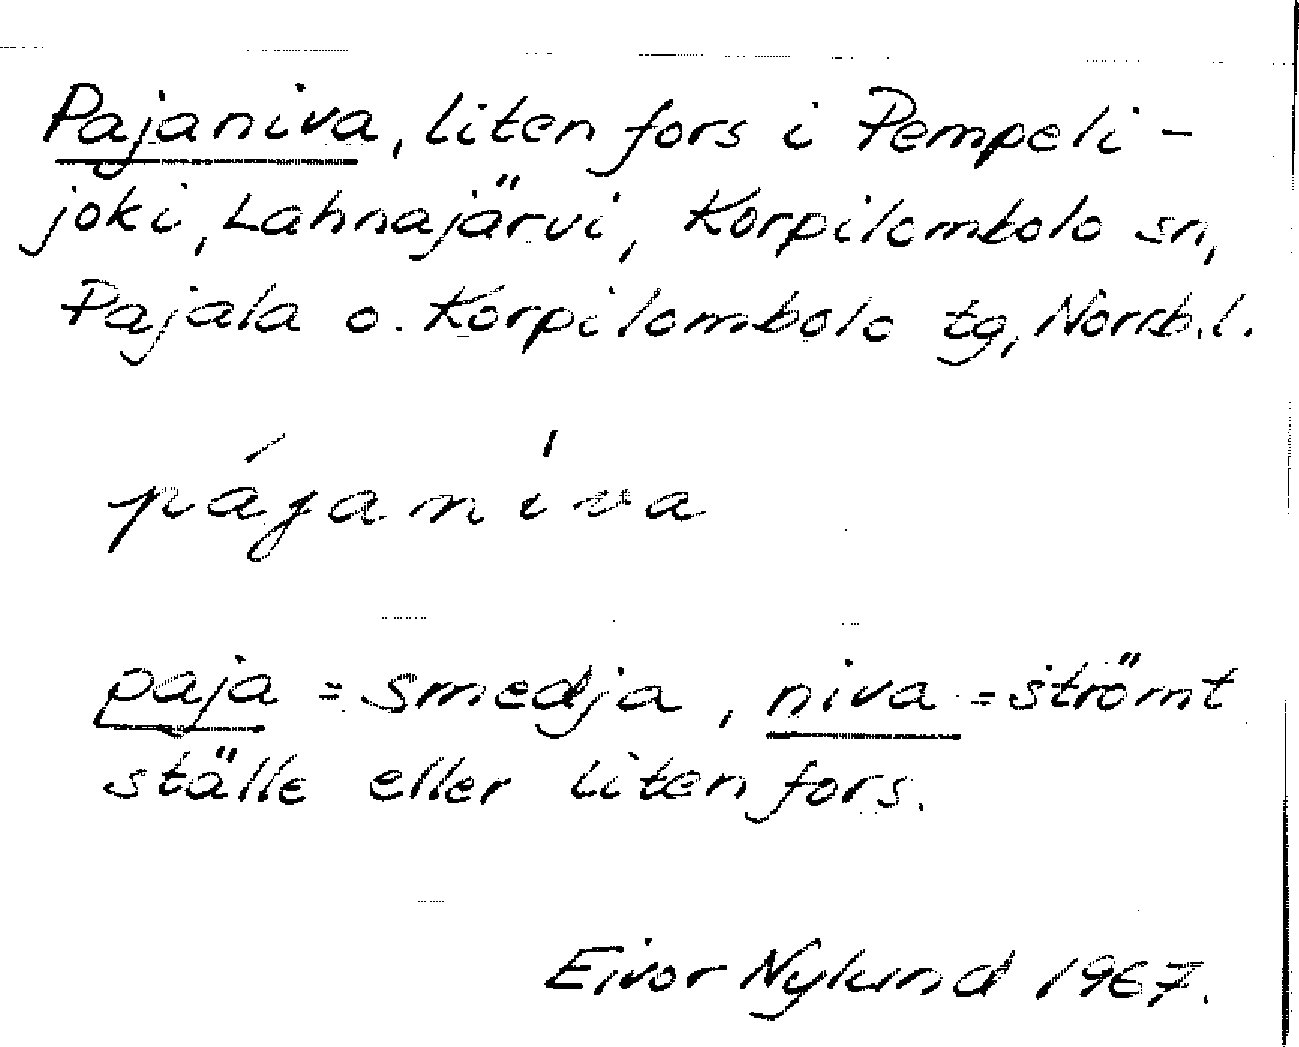 Pajaniva, liten fors i Pempeli-
joki, Lahnajärvi, Korpilombolo sn,
Pajala o. Korpilombolo tg, Norrb.l.
pájanìva
paja = smedja, niva = strömt
ställe eller liten fors.
Eivor Nylund 1967.